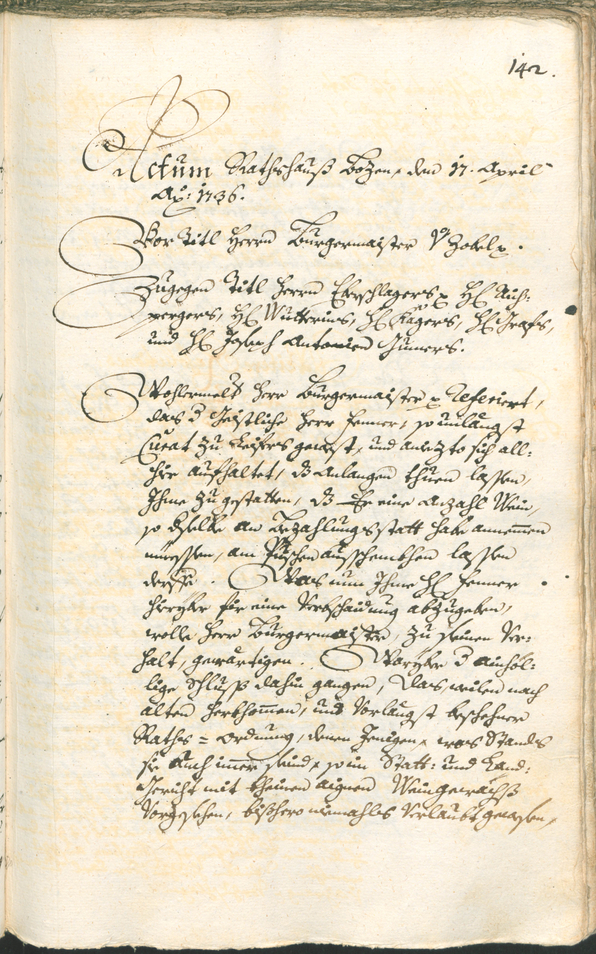 142.
Actum Rathshauß Bozen, den 17. April
Aõ: 1736.
Vor Titl Herrn Burgermaister v Zobel p.
Zugegen Titl Herrn Eberschlagers p H: Auf-
pergers, H: Wutterins, H: Kagers, H: Grafs,
und H: Joseph Antonien Gumers.
Wohlermelt Herr Burgermaister p Referiert,
das d Geistliche Herr Jenner, so unlängst
Curat zu Leifers gewest, und aniezto sich all-
hier aufhaltet, dz Anlangen thuen lassen,
Ihme zu gestatten, dz Er eine Anzahl Wein,
so dselbe an Bezahlungsstatt habe annemen
müessen, am Puschen ausschenkhen lassen
derffe. Was nun Ihme H: Jenner
hieryber für eine Verbschaidung abzugeben,
wolle Herr Burgermaister, zu seinen Ver-
halt, gewärtigen. Woryber d ainhöl-
lige Schluß dahin gangen, das, weilen nach
alten herkhomen, und Vorlängst beschehner
Raths-Ordnung, denen Jenigen, was Stands
sie auch imer seind, so im Statt- und Land-
Gericht mit kheinen aignen Weingewächß
Vorgesehen, bishero niemahls Verlaubt gewesen,